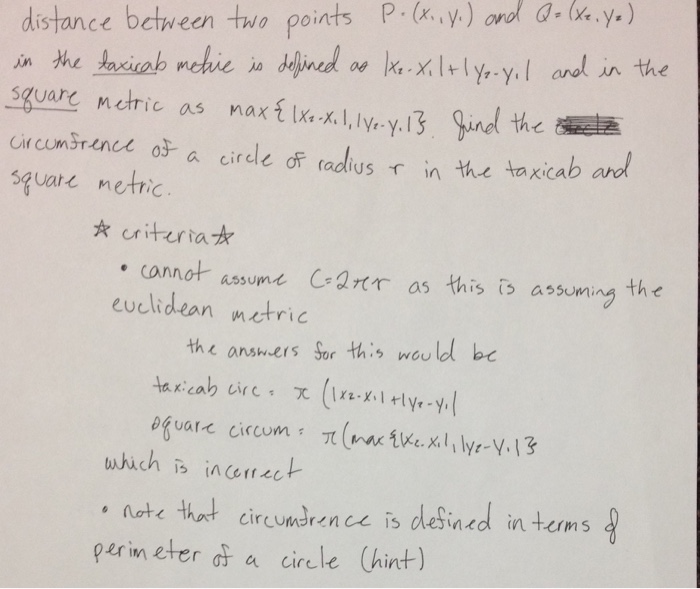 distance between two points P=(x₁,y₁) and Q=(x₂,y₂)
in the taxicab metric is defined as |x₂-x₁|+|y₂-y₁| and in the
square metric as max{|x₂-x₁|,|y₂-y₁|}. Find the
circumfrence of a circle of radius r in the taxicab and
square metric.
☆ criteria ☆
• cannot assume C=2πr as this is assuming the
euclidean metric
the answers for this would be
taxicab circ = π(|x₂-x₁|+|y₂-y₁|
square circum = π(max{|x₂-x₁|,|y₂-y₁|}
which is incorrect
• note that circumfrence is defined in terms of
perimeter of a circle (hint)